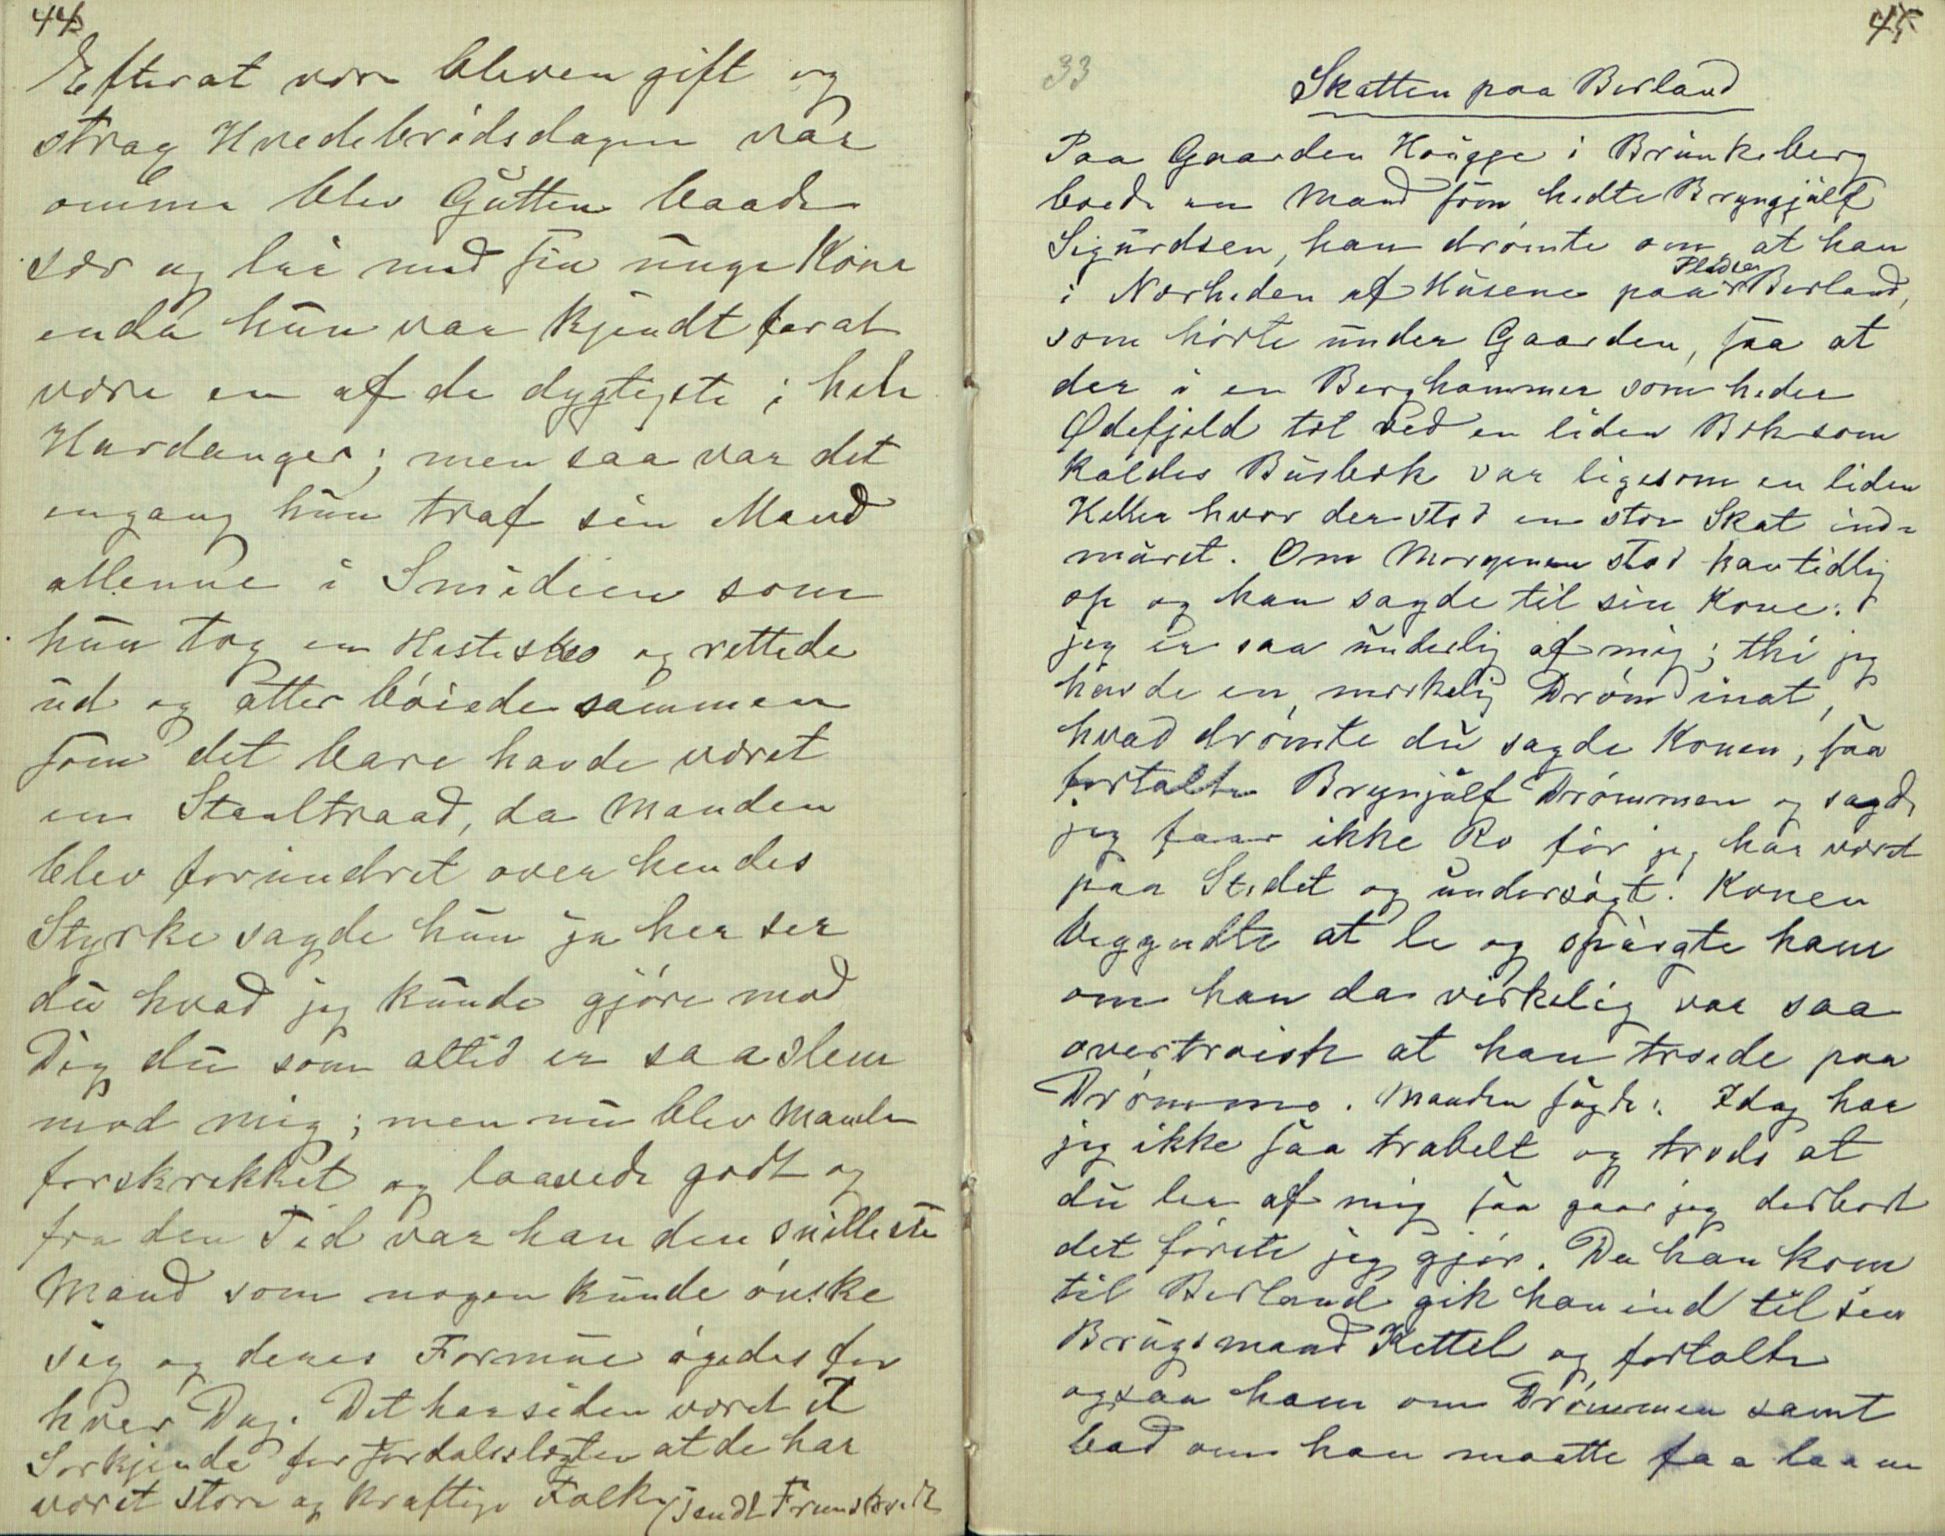 44
Efterat være bleven gift og
strax Hvedebrødsdagen var
omme blev Gutten baade
sær og lei med sin unge Kone
enda hun var kjendt for at
være en af de dygtigste i hele
Hardanger; men saa var det
engang hun traf sin Mand
allenne i Smidien som
hun tog en Hestesko og rettede
ud og atter bøiede sammen
som det bare havde været
en Staaltraad, da Manden
blev forundret over hendes
Styrke sagde hun ja her ser
du hvad jeg kunde gjøre mod
Dig du som altid er saa slem
mod mig; men nu blev Manden
forskrækket og laavede godt og
fra den Tid var han den snilleste
Mand som nogen kunde ønske
sig og deres Formue øgedes for
hver Dag. Det har siden været et
Særkjende for Jordalsslægten at de har
været store og kraftige Folk
45
33
Skatten paa Berland
Paa Gaarden Haugge i Brunkeberg
boede en Mand som hedte Bryngjulf
Sigurdsen, han drømte om, at han
i Nærheden af Husene paa Pladsen Berland,
som hørte under Gaarden, saa at
der i en Berghammer som heder
Ødefjeld tæt ved en liden Bæk som
kaldes Busbæk var ligesom en liden
Heller hvor der stod en stor Skat ind-
muret. Om Morgenen stod han tidlig
op og han sagde til sin Kone:
jeg er saa underlig af mig; thi jeg
havde en mærkelig Drøm inat,
hvad drømte du sagde Konen, saa
fortalte Brynjulf Drømmen og sagde
jeg faaar ikke Ro før jeg har været
paa Stedet og undersøgt. Konen
begyndte at le og spørgte ham
om han da virkelig var saa
overtroisk at han troede paa
Drømme. Manden sagde: Idag har
jeg ikke saa travelt og trods at
du ler af mig saa gaar jeg derbort
det første jeg gjør. Da han kom
til Berland gik han ind til sin
Brugsmand Kettel og fortalte
ogsaa ham om Drømmen samt
bad om han maatte faa laane